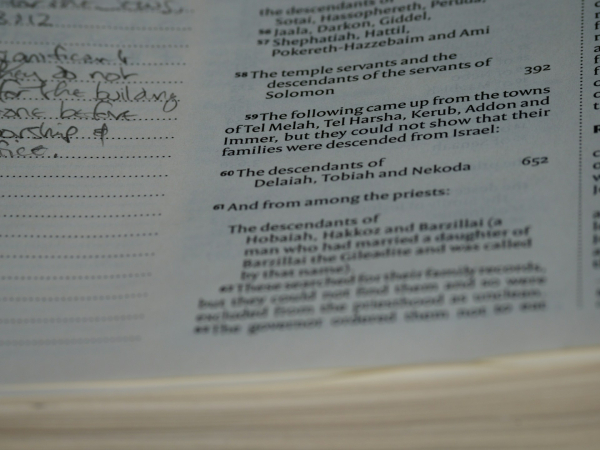 8:12
significant
they do not
for the building
one before
worship &
the descendants of
Sotai, Hassophereth, Peruda,
56 Jaala, Darkon, Giddel,
57 Shephatiah, Hattil,
Pokereth-Hazzebaim and Ami
58 The temple servants and the
descendants of the servants of
Solomon 392
59 The following came up from the towns
of Tel Melah, Tel Harsha, Kerub, Addon and
Immer, but they could not show that their
families were descended from Israel:
60 The descendants of
Delaiah, Tobiah and Nekoda 652
61 And from among the priests:
The descendants of
Hobaiah, Hakkoz and Barzillai (a
man who had married a daughter of
Barzillai the Gileadite and was called
by that name).
62 These searched for their family records,
but they could not find them and so were
excluded from the priesthood as unclean.
63 The governor ordered them not to eat